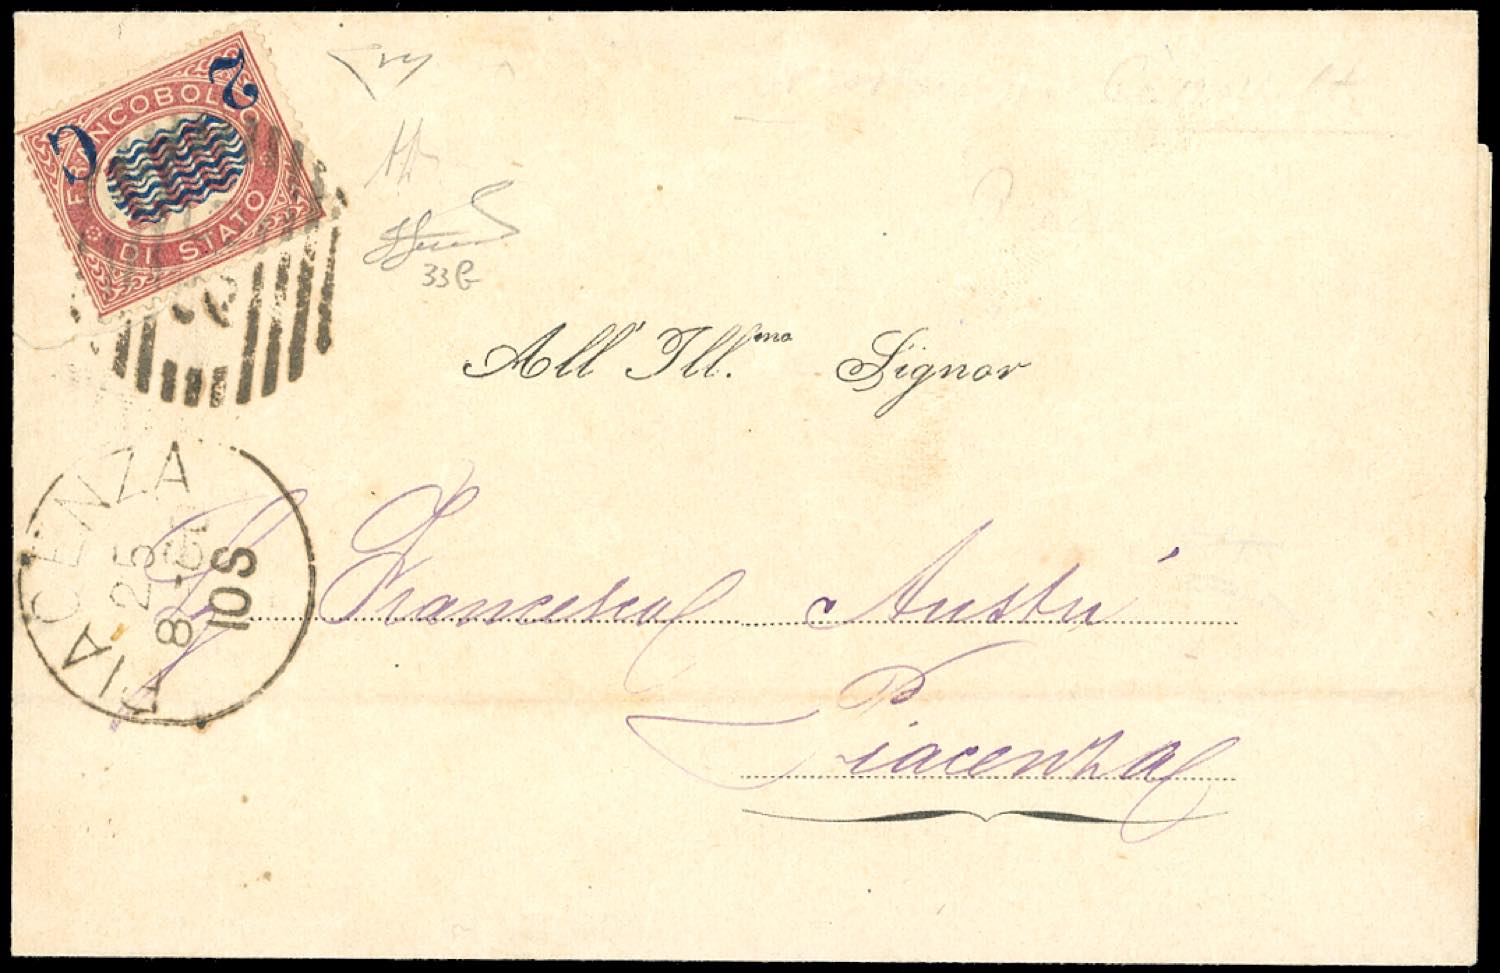 2 C
FRANCOBOLLO
DI STATO
33B
All' Ill.mo Signor
Francesco Austri
Piacenza
PIACENZA
25
8-
10S